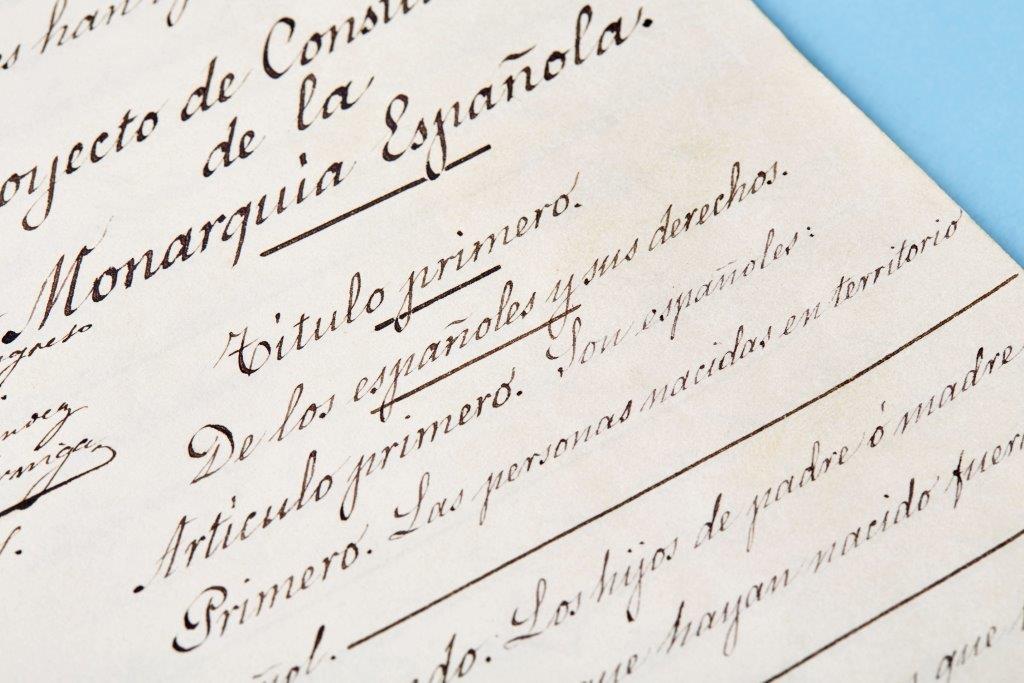 es han
oyecto de Constit
de la
Monarquia Española.
Titulo primero.
De los españoles y sus derechos.
Articulo primero. Son españoles:
Primero. Las personas nacidas en territorio
ñol.
do. Los hijos de padre ó madre
que hayan nacido fuera
que